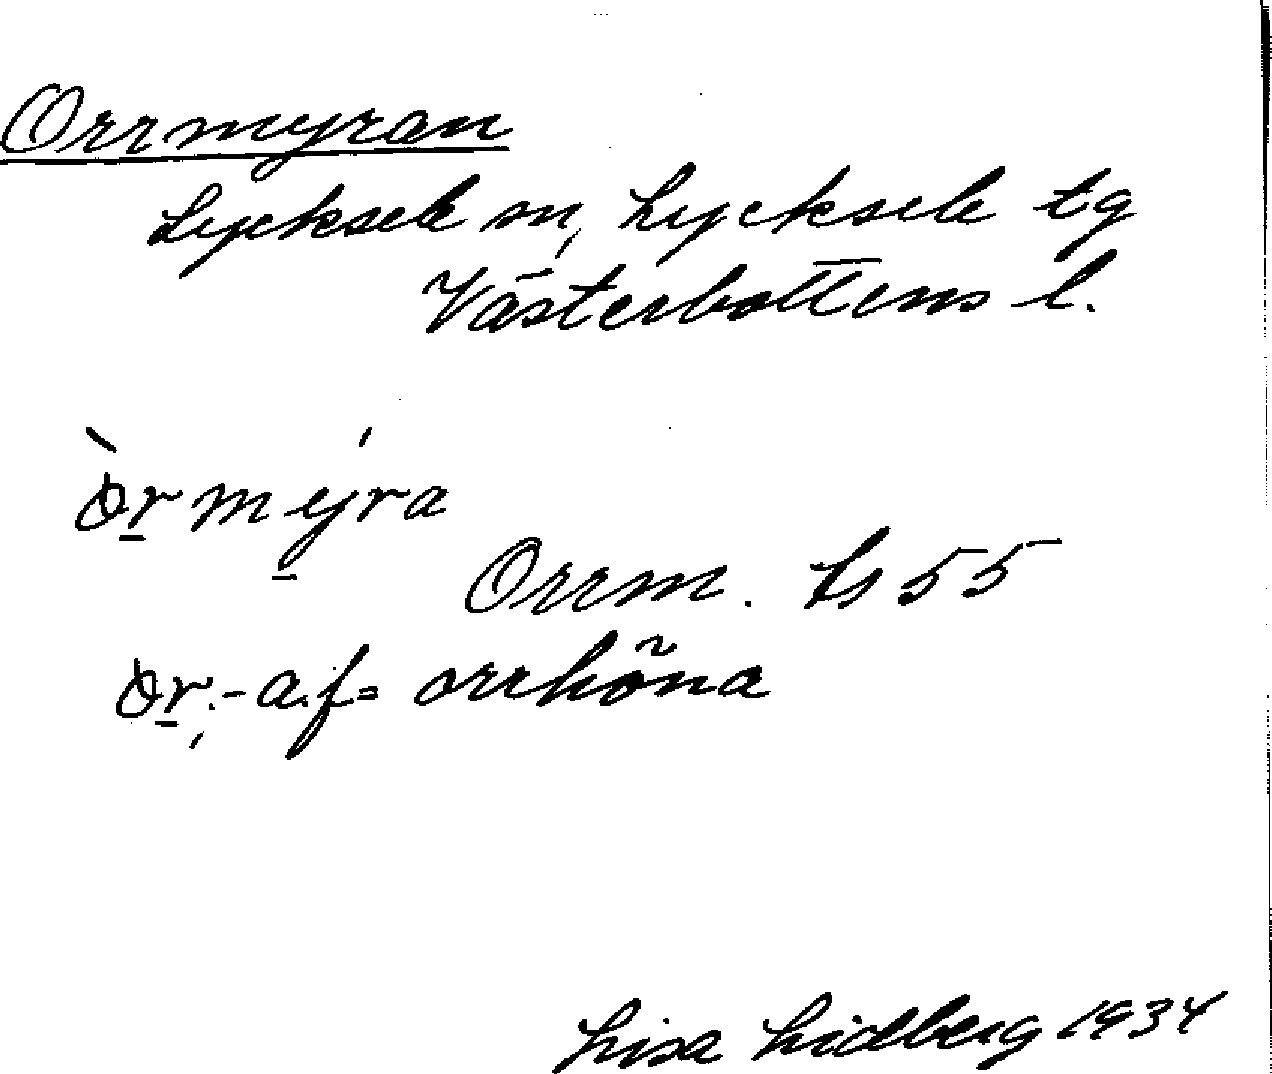 Orrmyran
Lycksele sn, Lycksele tg
Västerbottens l.
òrmýra
Orrm. ts 55
òr,-a.f= orrhöna
Lisa Lidberg 1934